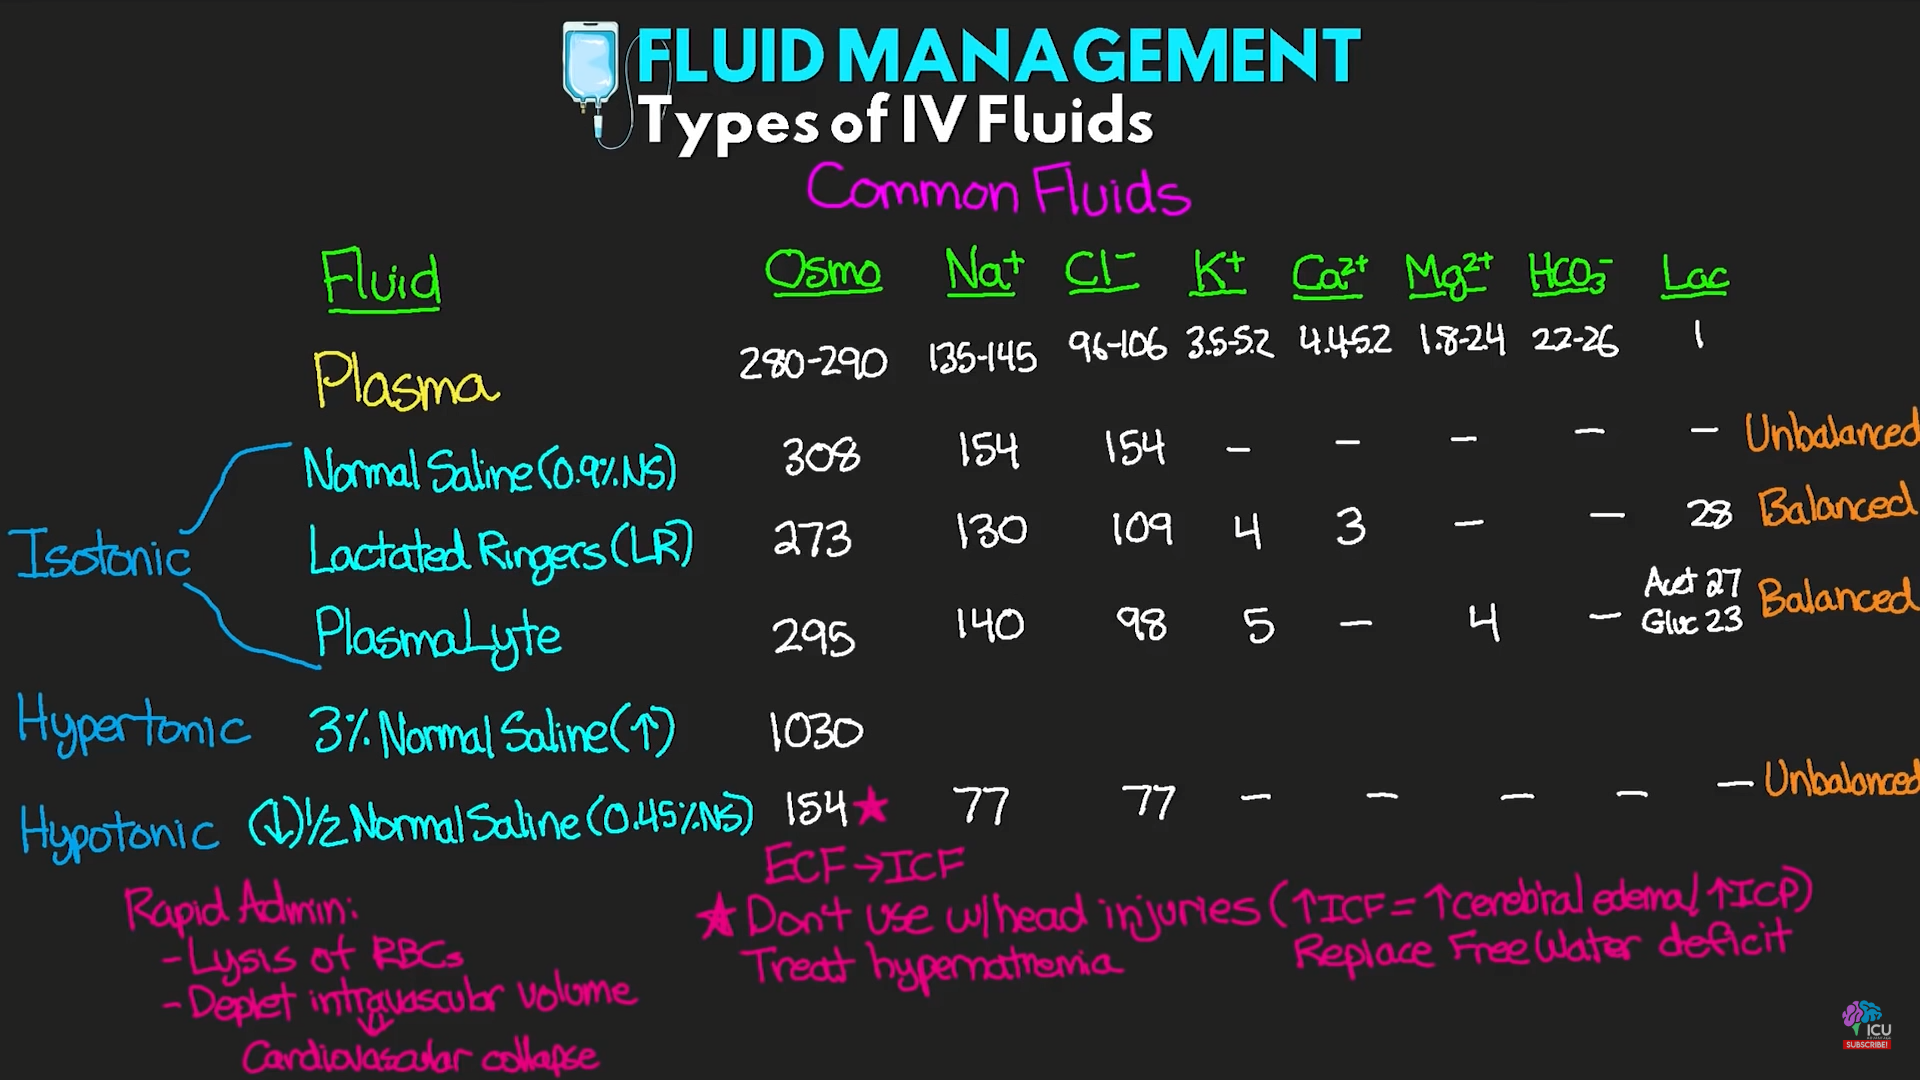 FLUID MANAGEMENT
Types of IV Fluids
Common Fluids
Fluid Osmo Na⁺ Cl⁻ K⁺ Ca²⁺ Mg²⁺ HCO₃⁻ Lac
Plasma 280-290 135-145 96-106 3.5-5.2 4.4-5.2 1.8-2.4 22-26 1
Normal Saline (0.9% NS) 308 154 154 - - - - - Unbalanced
Isotonic
Lactated Ringers (LR) 273 130 109 4 3 - - 28 Balanced
PlasmaLyte 295 140 98 5 - 4 - Acet 27 Gluc 23 Balanced
Hypertonic 3% Normal Saline (↑) 1030
Hypotonic (↓) 1/2 Normal Saline (0.45% NS) 154 ★ 77 77 - - - - - Unbalanced
ECF → ICF
Rapid Admin:
- Lysis of RBCs
- Deplet intravascular volume
↓
Cardiovascular collapse
★ Don't use w/ head injuries (↑ICF = ↑cerebral edema / ↑ICP)
Treat hypernatremia
Replace Free Water deficit
ICU
SUBSCRIBE!